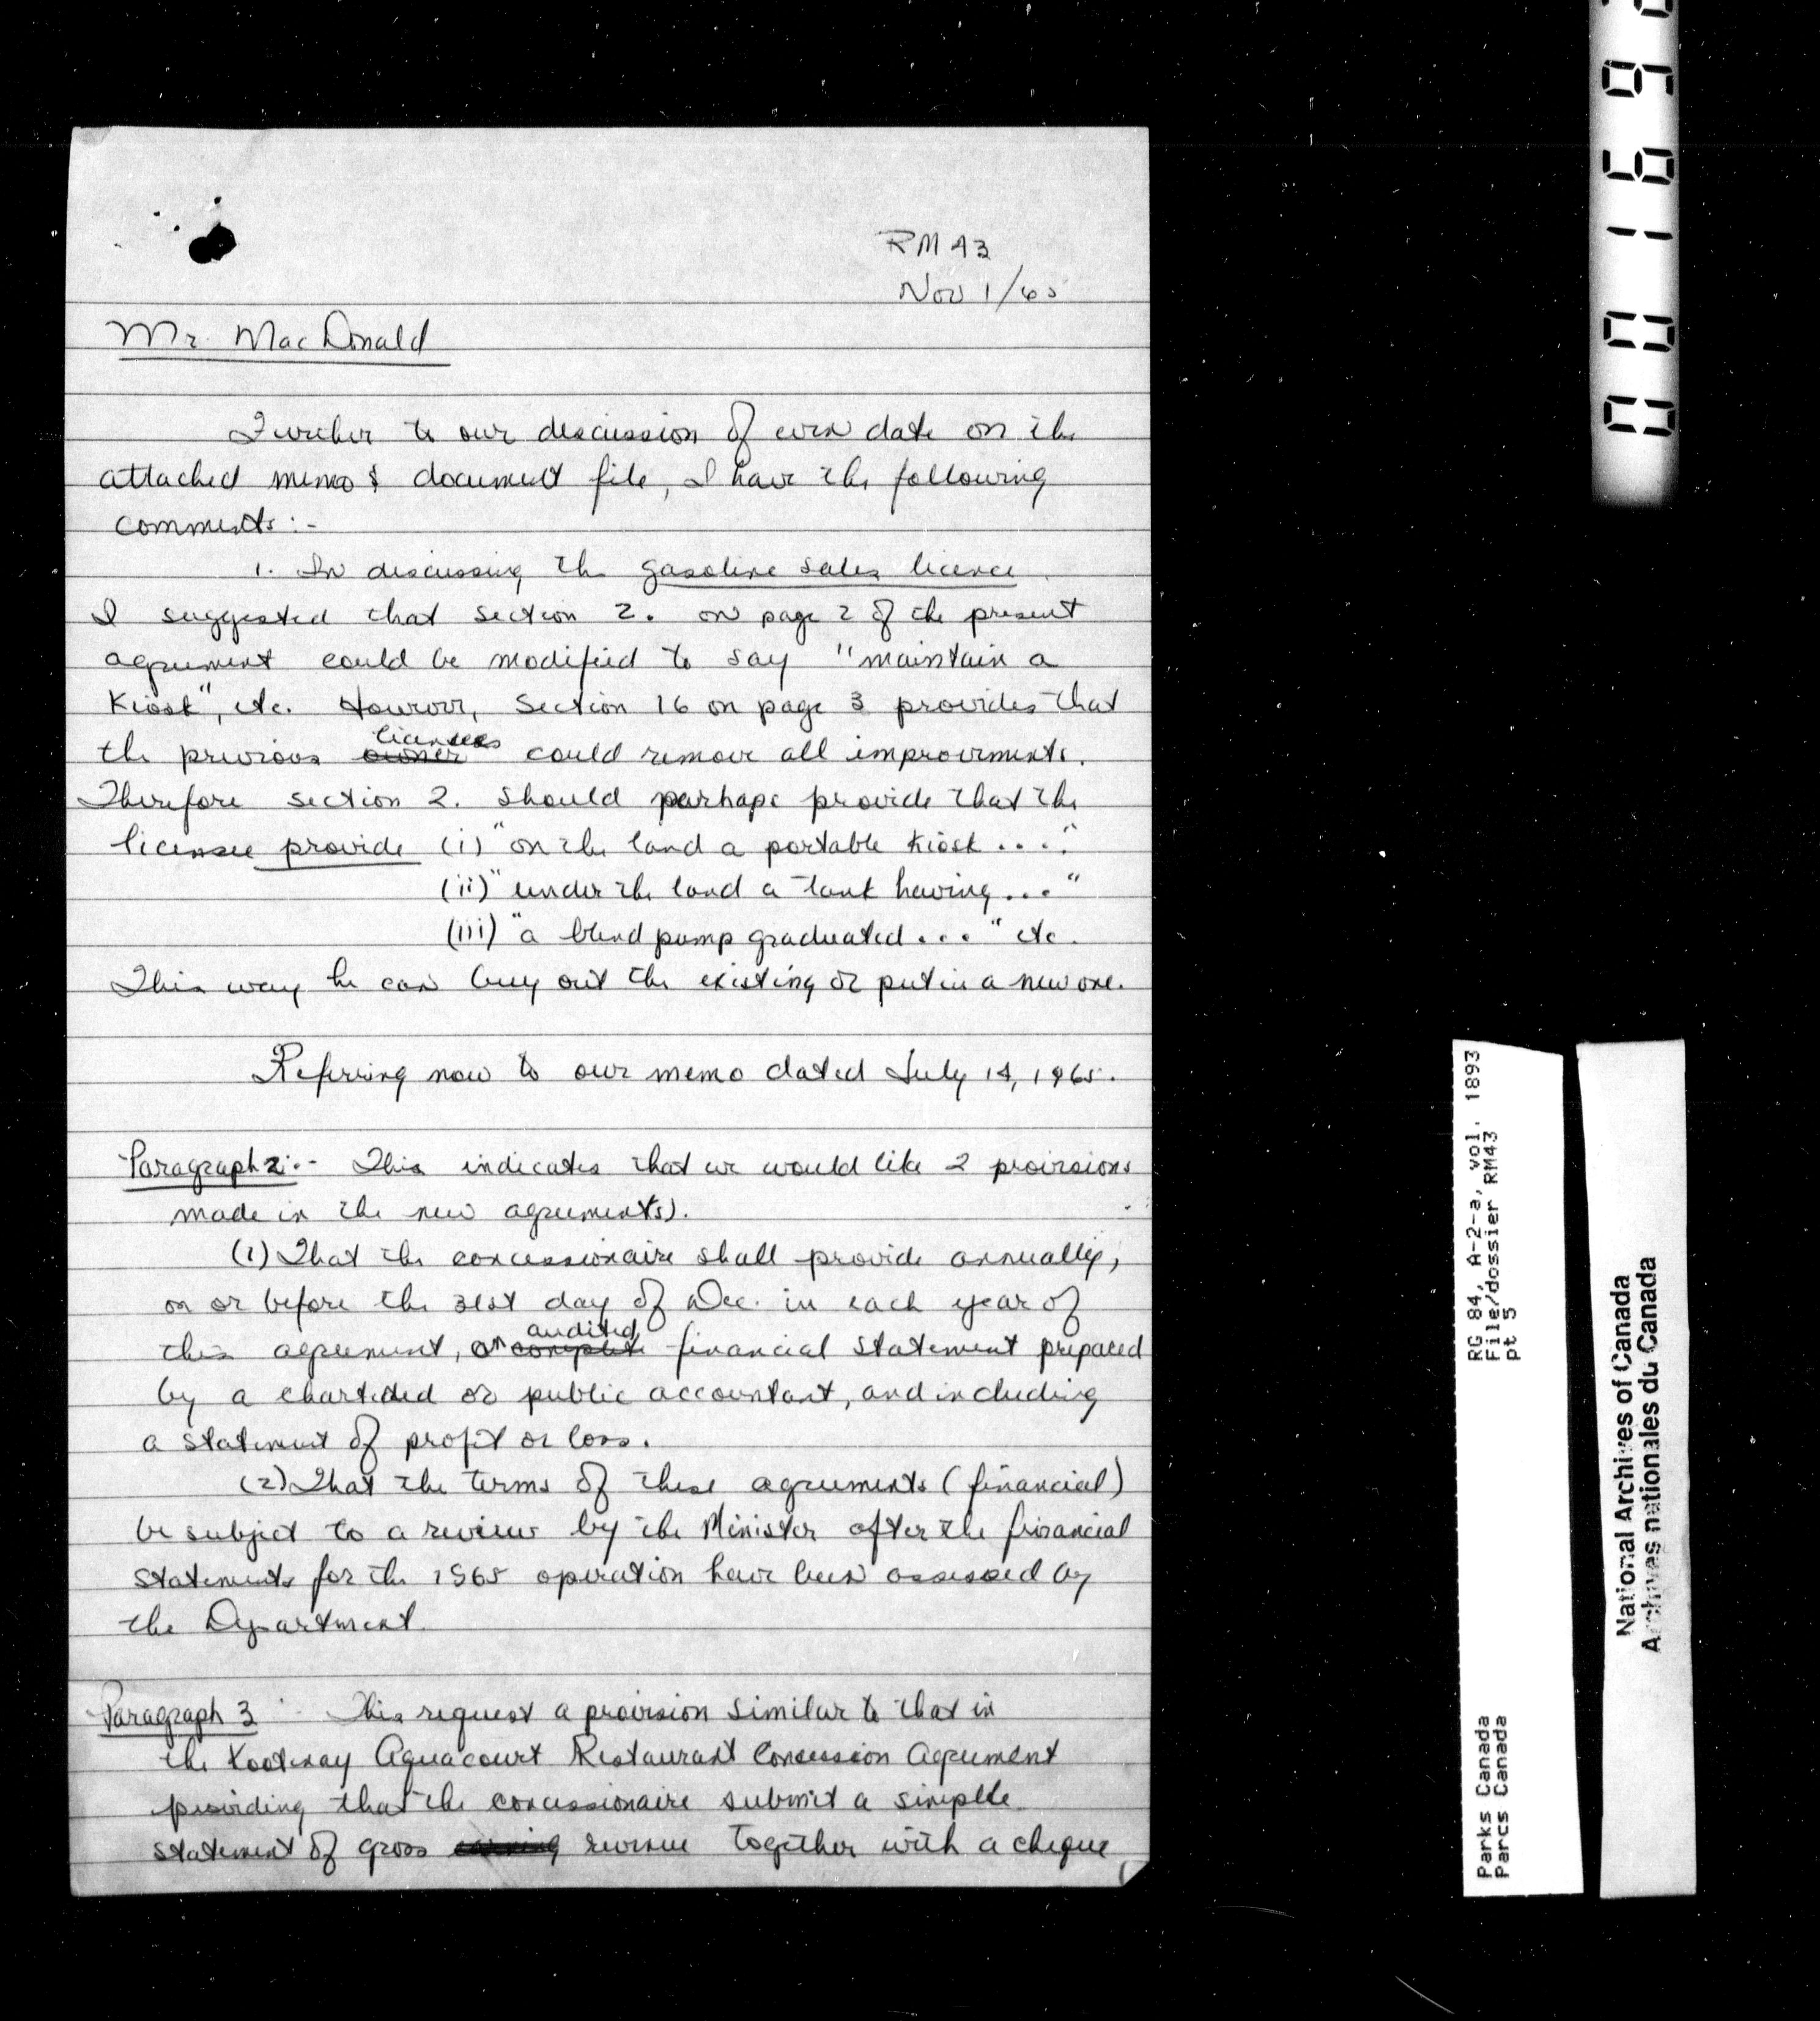 RM 43
Nov 1/65
Mr. MacDonald
Further to our discussion of even date on the
attached memo & document file, I have the following
comments:-
1. In discussing the gasoline sales licence
I suggested that section 2. on page 2 of the present
agreement could be modified to say "maintain a
Kiosk", etc. However, Section 16 on page 3 provides that
licensees
the previous owner could remove all improvements.
Therefore section 2. should perhaps provide that the
licensee provide (i) "on the land a portable kiosk ...."
(ii) "under the land a tank having ..."
(iii) "a blend pump graduated ... " etc.
This way he can buy out the existing or put in a new one.
Referring now to our memo dated July 14, 1965.
Paragraph 2:- This indicates that we would like 2 provisions
made in the new agreement(s).
(1) That the concessionaire shall provide annually,
on or before the 31st day of Dec. in each year of
audited
this agreement, an complete financial statement prepared
by a charterded or public accountant, and including
a statement of profit or loss.
(2) That the terms of these agreements (financial)
be subject to a review by the Minister after the financial
statements for the 1965 operation have been assessed by
the Department.
Paragraph 3 - This request a provision similar to that in
the Kootenay Aquacourt Restaurant Concession Agreement
providing that the concessionaire submit a simple
statement of gross earning revenue together with a cheque
RG 84, A-2-a, vol. 1893
File/dossier RM43
pt 5
Parks Canada
Parcs Canada
National Archives of Canada
Archives nationales du Canada